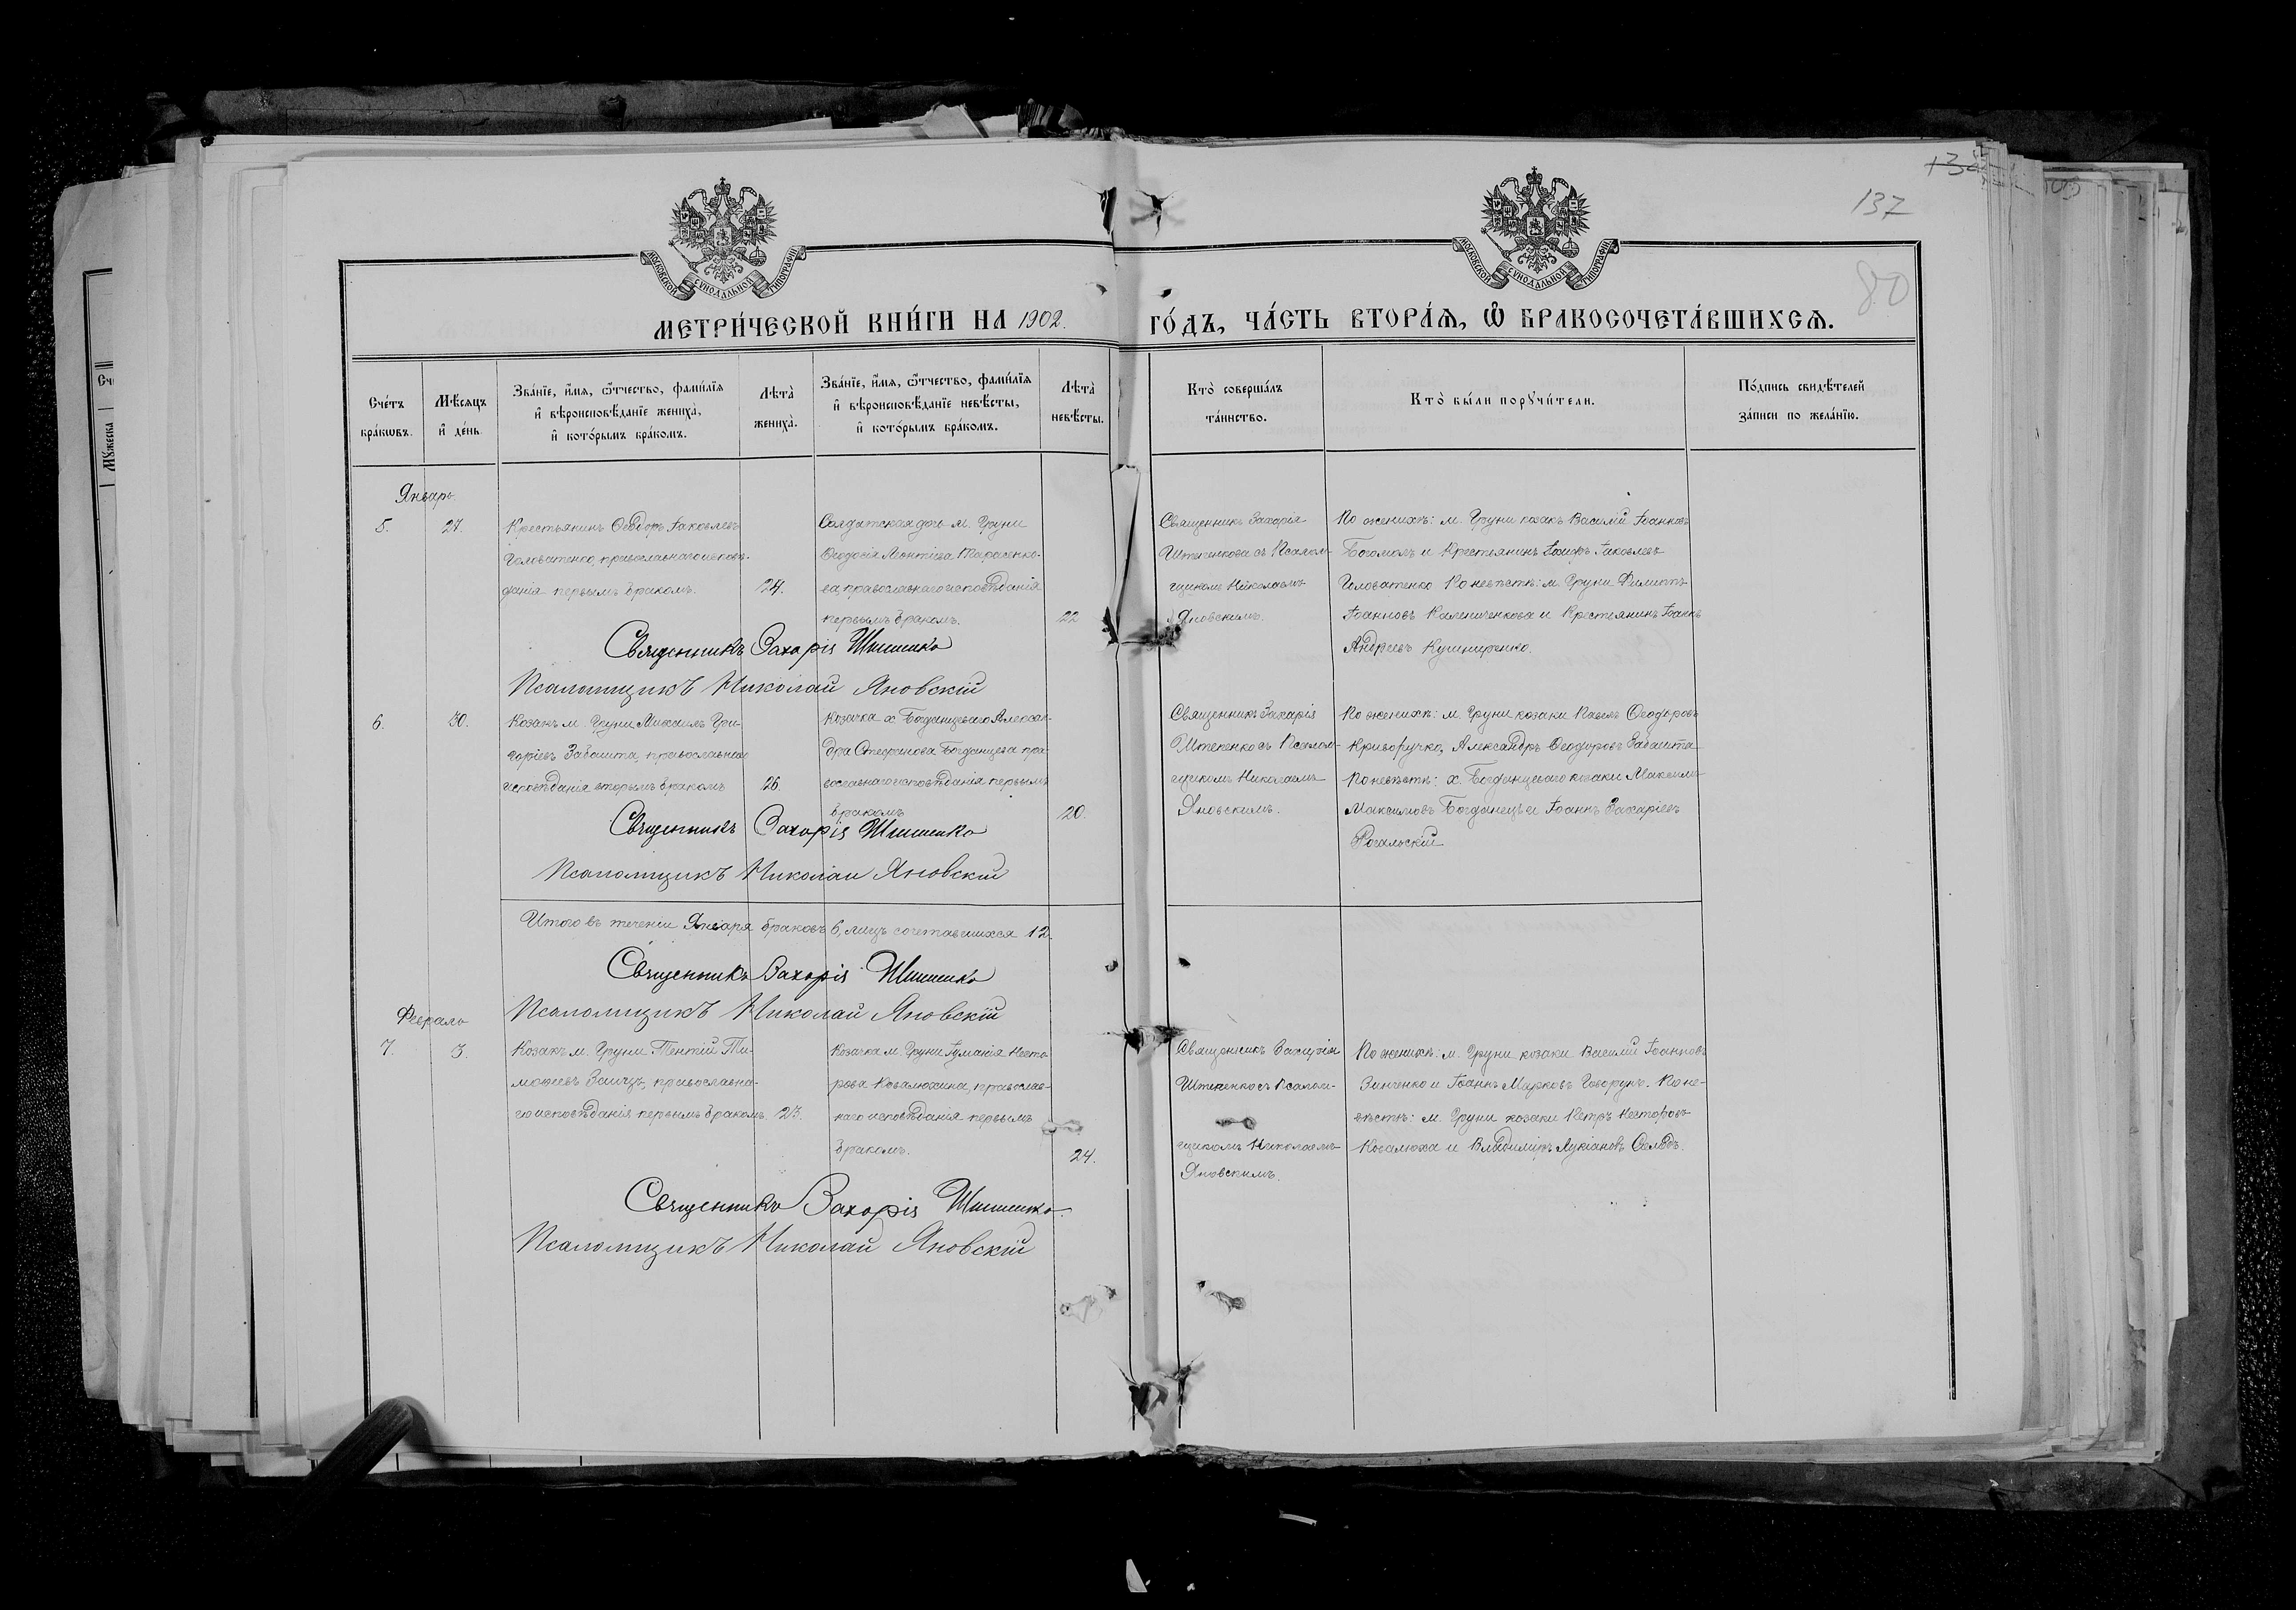 137
80
МОСКОВСКОЙ СѴНОДАЛЬНОЙ ТИПОГРАФІИ
МОСКОВСКОЙ СѴНОДАЛЬНОЙ ТИПОГРАФІИ
МЕТРИ́ЧЕСКОЙ КНИ́ГИ НА 1902. ГО́ДЪ, ЧА́СТЬ ВТОРА́Я, Ѡ БРАКОСОЧЕТА́ВШИХСЯ.
Сче́тъ
бра́кѡвъ.
Мѣ́сяцъ
и҆ де́нь.
Зва́нїе, и҆́мя, ѻ҆́тчество, фами́лїя
и҆ вѣроисповѣ́данїе жениха̀,
и҆ кото́рымъ бра́комъ.
Лѣта̀
жениха̀.
Зва́нїе, и҆́мя, ѻ҆́тчество, фами́лїя
и҆ вѣроисповѣ́данїе невѣ́сты,
и҆ кото́рымъ бра́комъ.
Лѣта̀
невѣ́сты.
Кто̀ соверша́лъ
та́инство.
Кто̀ бы́ли порꙋчи́тели.
По́дпись свидѣ́телей
за́писи по жела́нїю.
Январь.
5.
27.
Крестьянинъ Ѳеодоръ Іаковлевъ
Головатенко, православнаго исповѣ-
данія первымъ бракомъ.
24.
Солдатская дочь м. Груни
Ѳеодосія Леонтіева Тарасенко-
ва, православнаго исповѣданія
первымъ бракомъ.
22
Священникъ Захарія
съ Псалом-
щикомъ Николаемъ
Яновскимъ.
По женихѣ: м. Груни козакъ Василій Іоанновъ
Богомолъ и Крестьянинъ Іосифъ Іаковлевъ
Головатенко По невѣстѣ: м. Груни Филиппъ
Іоанновъ Калениченкова и Крестьянинъ Іоаннъ
Андреевъ Кушниренко.
Священникъ Захарія
Псаломщикъ Николай Яновскій
6.
30.
Козакъ м. Груни Михаилъ Гри-
горіевъ Забашта, православнаго
исповѣданія вторымъ бракомъ
26.
Козачка х. Богданцеваго Алексан-
дра Стефанова Богданцева пра-
вославнаго исповѣданія первымъ
бракомъ
20.
Священникъ Захарія
съ Псалом-
щикомъ Николаемъ
Яновскимъ.
По женихѣ: м. Груни козаки Павелъ Ѳеодоровъ
Криворучко, Александръ Ѳеодоровъ Забашта
По невѣстѣ: х. Богданцеваго козаки Максимъ
Максимовъ Богданецъ и Іоаннъ Захаріевъ
Рогальскій
Священникъ Захарія
Псаломщикъ Николай Яновскій
Итого въ теченіи Января браковъ 6, лицъ сочетавшихся 12.
Священникъ Захарія
Псаломщикъ Николай Яновскій
Февраль
7.
3.
Козакъ м. Груни Терентій Ти-
моѳеевъ Заяцъ, православна-
го исповѣданія первымъ бракомъ.
23.
Козачка м. Груни Іуліанія Несто-
рова Ковалюхина, православ-
наго исповѣданія первымъ
бракомъ.
24.
Священникъ Захарія
съ Псалом-
щикомъ Николаемъ
Яновскимъ.
По женихѣ: м. Груни козаки Василій Іоанновъ
Зинченко и Іоаннъ Марковъ Говорунъ. По не-
вѣстѣ: м. Груни козаки Петръ Несторовъ
Ковалюха и Владиміръ Лукіановъ
Священникъ Захарія
Псаломщикъ Николай Яновскій